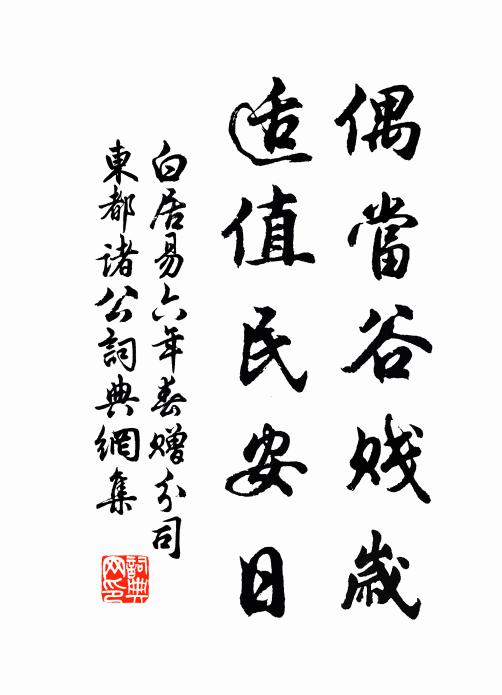 偶當谷賤歲
适值民安日
白居易六年春赠分司
東都諸公詞典網集
詞典
网印